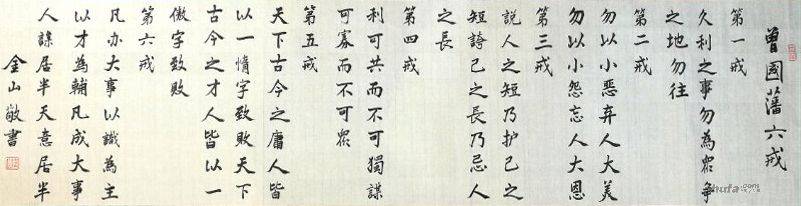 曾國藩六戒
第一戒
久利之事勿為眾爭
之地勿往
第二戒
勿以小惡弃人大美
勿以小怨忘人大恩
第三戒
說人之短乃护己之
短誇己之長乃忌人
之長
第四戒
利可共而不可獨謀
可寡而不可眾
第五戒
天下古今之庸人皆
以一惰字致敗天下
古今之才人皆以一
傲字致敗
第六戒
凡办大事以識為主
以才為輔凡成大事
人謀居半天意居半
金山敬書